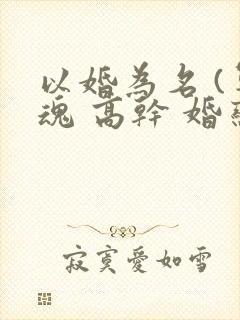 以婚為名(
魂 高幹 婚
寂寞愛如雪